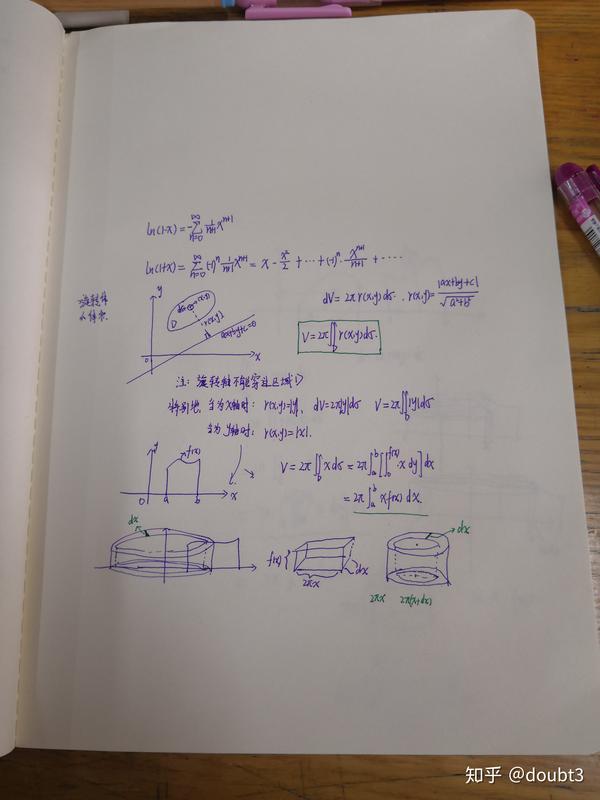 ln(1-x) = -∑_{n=0}^{∞} 1/(n+1) x^{n+1}
ln(1+x) = ∑_{n=0}^{∞} (-1)^n 1/(n+1) x^{n+1} = x - x²/2 + ··· + (-1)^n · x^{n+1}/(n+1) + ····
旋转体
体积
y
D
r(x,y)
ax+by+c=0
0
x
dV = 2π r(x,y) dσ. , r(x,y) = |ax+by+c|/√(a²+b²)
V = 2π∬_D r(x,y) dσ.
注: 旋转轴不能穿过区域D
特别地, 当为x轴时: r(x,y)=|y|, dV=2π|y|dσ V=2π∬_D |y|dσ
当为y轴时: r(x,y)=|x|.
y
f(x)
0
a
b
x
V = 2π∬_D x dσ = 2π∫_a^b [∫_0^{f(x)} x dy] dx
= 2π∫_a^b x f(x) dx
dx
f(x)
2πx
dx
dx
2πx 2π(x+dx)
知乎 @doubt3